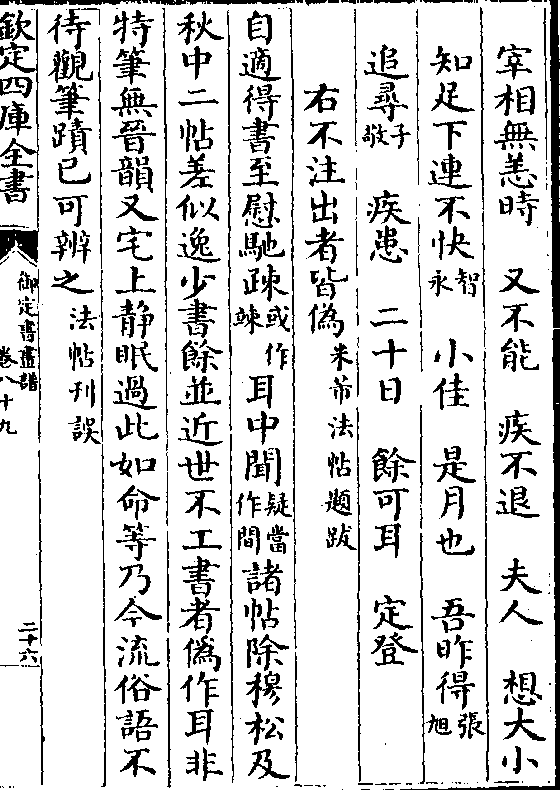 宰相無恙時　又不能　疾不退　夫人　想大小
知足下連不快智永　小佳　是月也　吾昨得張旭
追尋子敬　疾患　二十日　餘可耳　定登
右不注出者皆偽米芾法帖題跋
自適得書至慰馳疎或作竦　耳中聞疑當作間諸帖除穆松及
秋中二帖差似逸少書餘並近世不工書者偽作耳非
特筆無晉韻又宅上静眠過此如命等乃今流俗語不
待觀筆蹟已可辨之法帖刊誤
欽定四庫全書
御定書畫譜
卷八十九
二十六